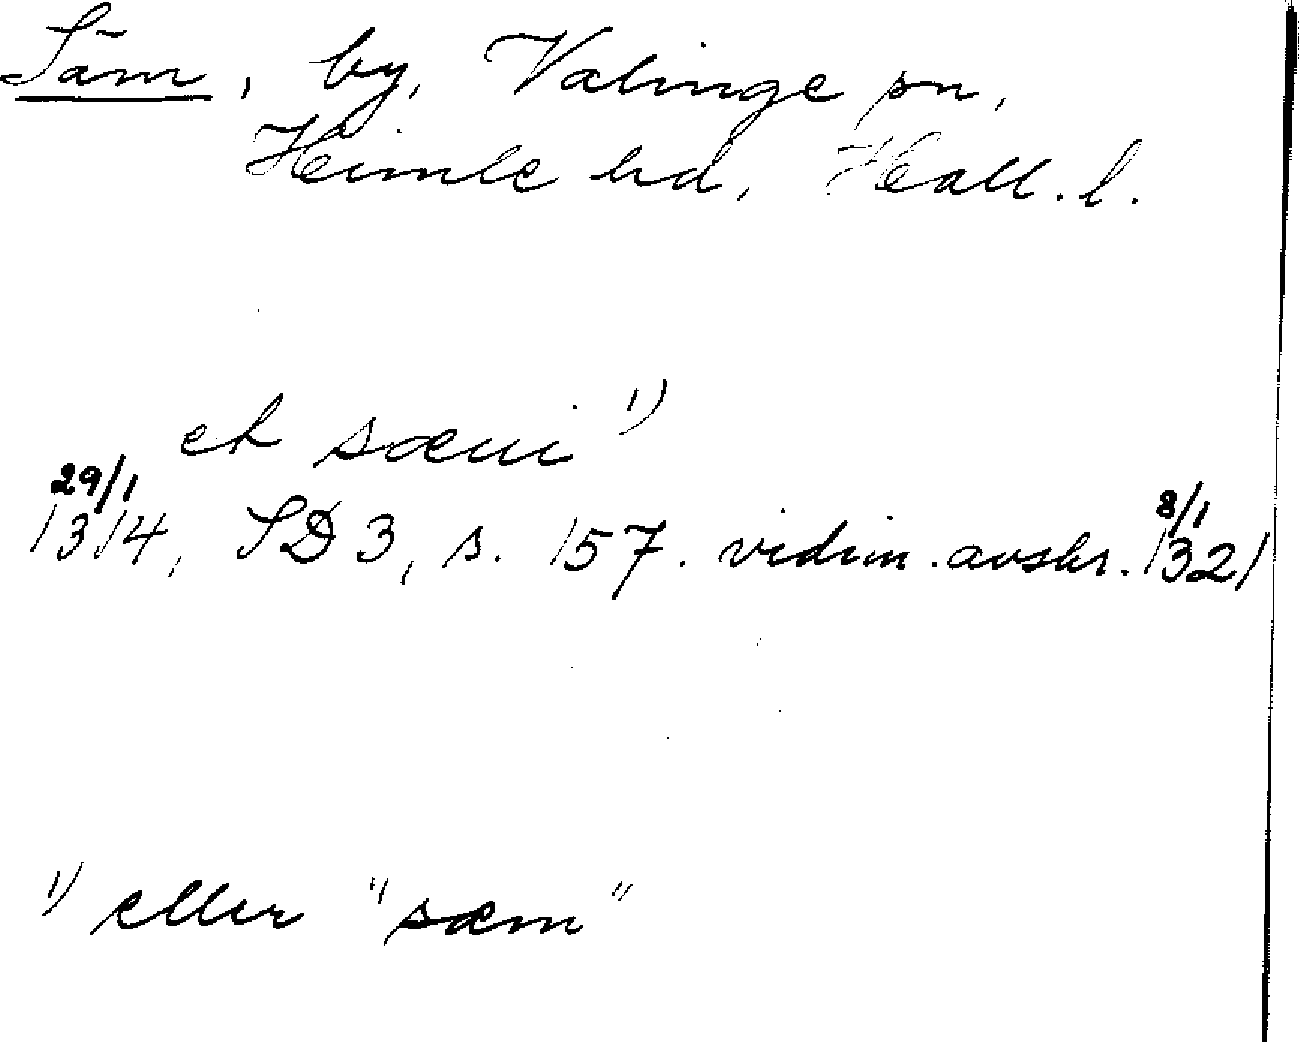 Säm, by, Valinge sn,
Himle hd, Hall. l.
et sæui 1)
29/1 8/1
1314, SD 3, s. 157. vidim. avskr. 1321
1) eller "sæm"